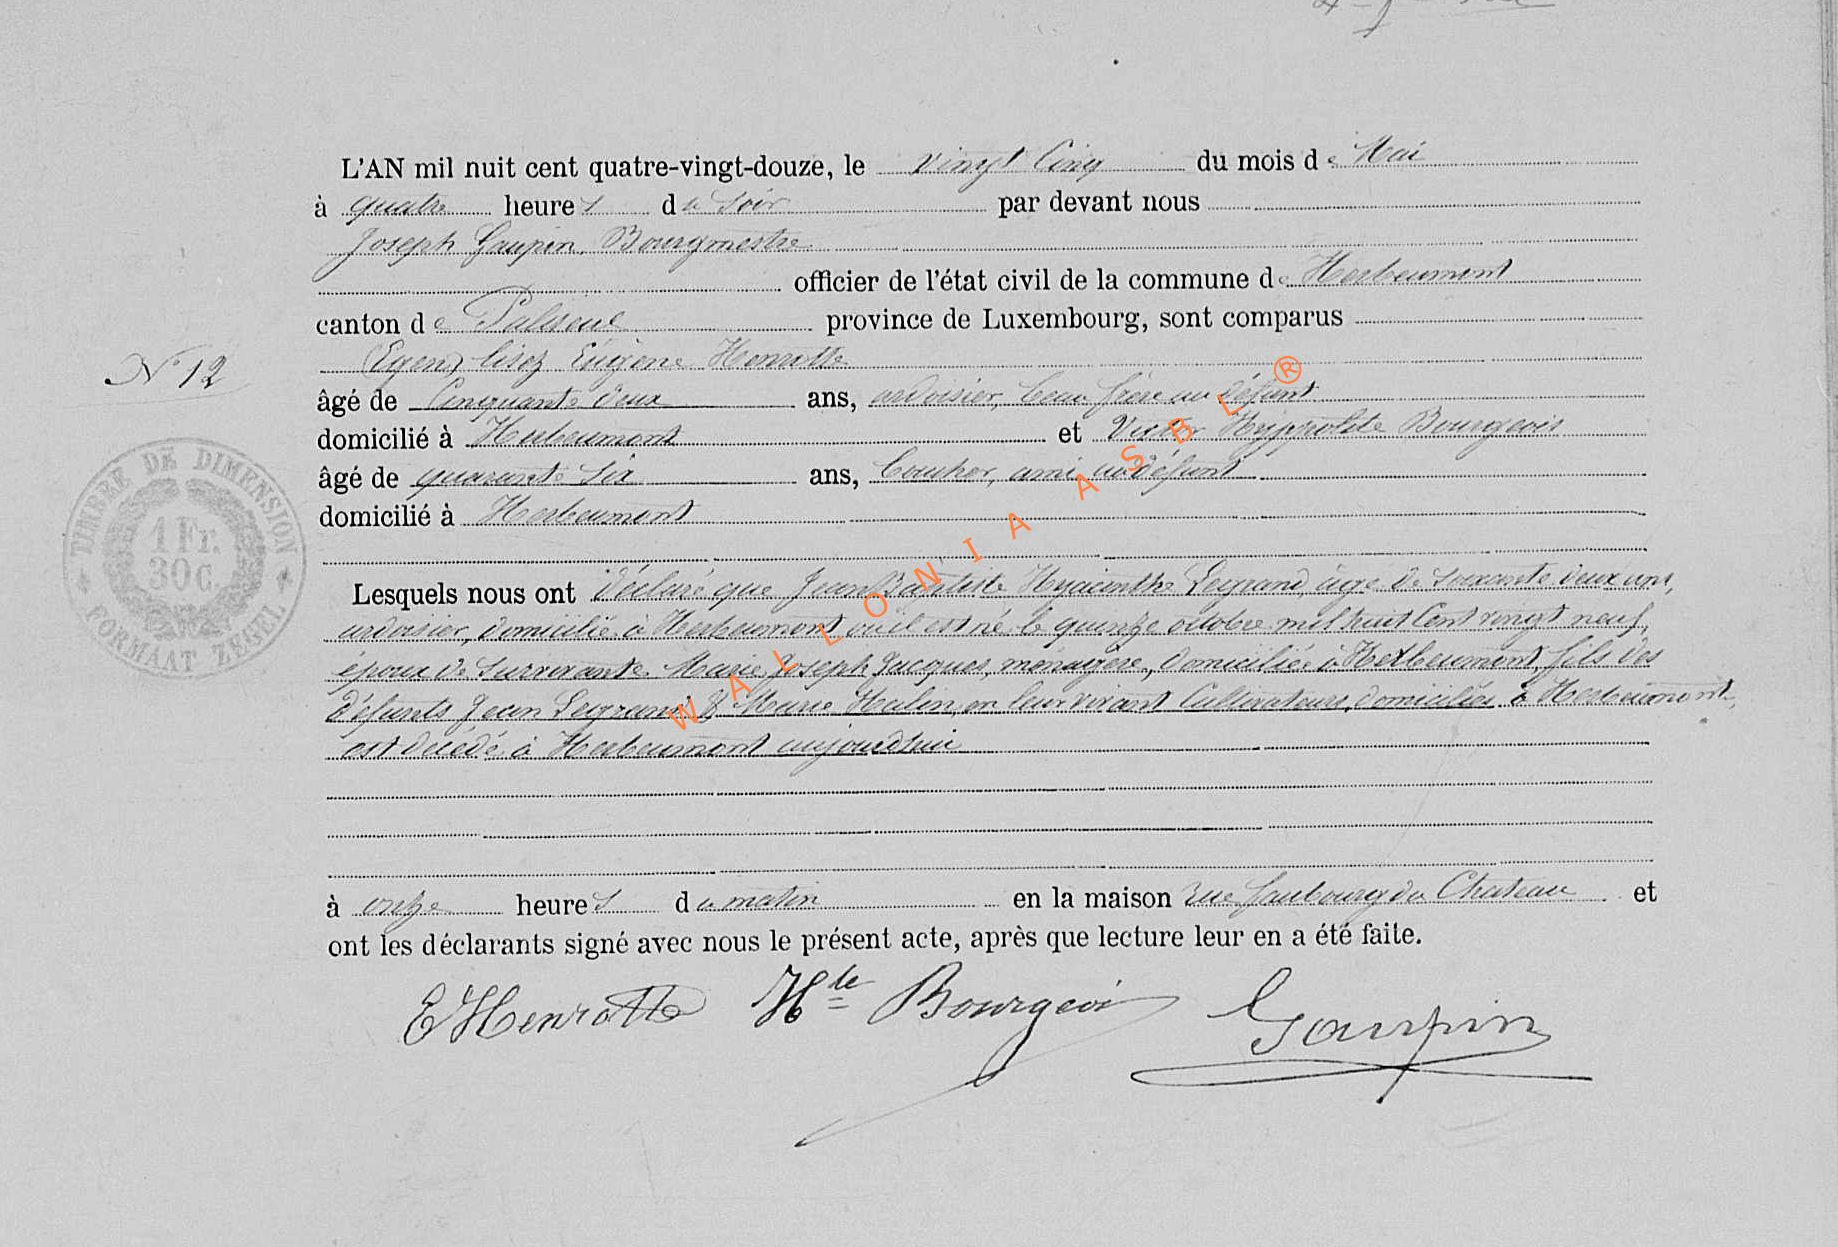 L'AN mil huit cent quatre-vingt-douze, le vingt Cinq du mois de Mai
à quatre heures du soir par devant nous
Joseph Gaupin, Bourgmestre
officier de l'état civil de la commune de Herbeumont
canton de Paliseul province de Luxembourg, sont comparus
N° 12
(Egen) lisez Eugène Henrotte
âgé de Cinquante deux ans, ardoisier, beau frère au défunt
domicilié à Herbeumont et Victor Hyppolite Bourgeois
âgé de quarante six ans, ami au défunt
domicilié à Herbeumont
TIMBRE DE DIMENSION
1 Fr.
30 C.
FORMAAT ZEGEL
Lesquels nous ont déclaré que Jean Baptiste Hyacinthe Legrand, âgé de soixante deux ans,
ardoisier, domicilié à Herbeumont où il est né le quinze octobre mil huit Cent vingt neuf,
époux de survivante Marie Joseph Jacques, ménagère, domiciliée à Herbeumont, fils des
défunts Jean Legrand & Marie Halin, en leur vivant Cultivateurs, domiciliés à Herbeumont,
est décédé à Herbeumont aujourd'hui
à onze heures du matin en la maison rue faubourg du Chateau et
ont les déclarants signé avec nous le présent acte, après que lecture leur en a été faite.
E Henrotte Hte Bourgeois Gaupin
WALLONIA ASBL ®